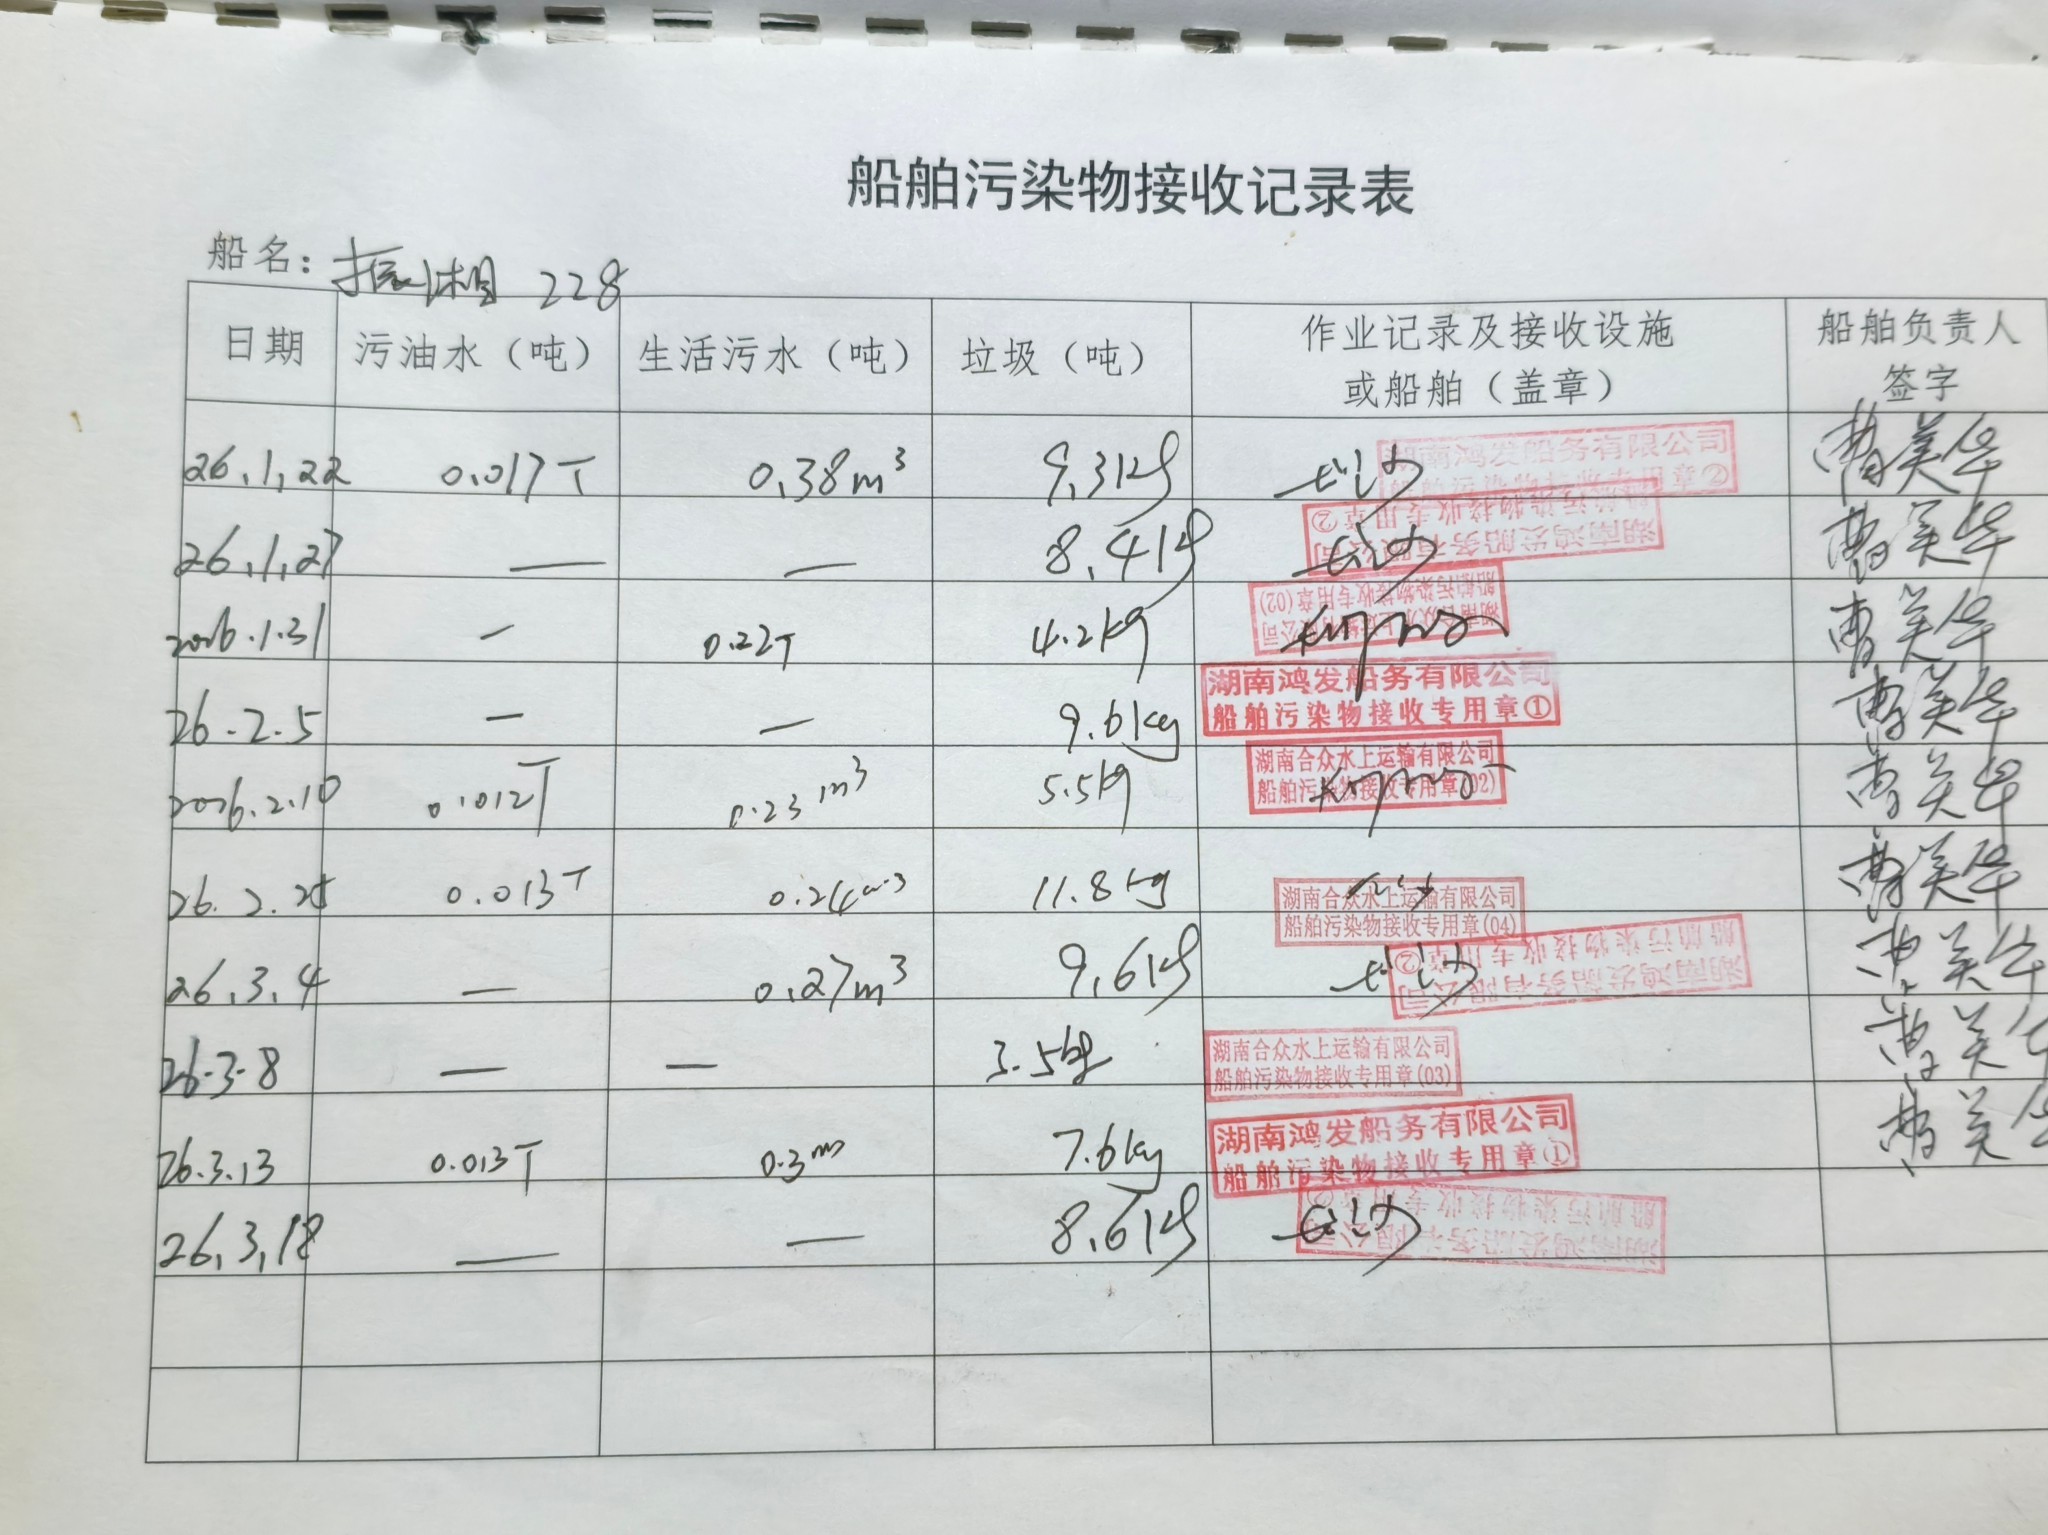 船舶污染物接收记录表
船名：振湘 228
日期 污油水（吨） 生活污水（吨） 垃圾（吨） 作业记录及接收设施或船舶（盖章） 船舶负责人签字
26.1.22 0.017T 0.38m³ 9.3kg 长沙 湖南鸿发船务有限公司 船舶污染物接收专用章② 曹美华
26.1.27 — — 8.4kg 长沙 湖南鸿发船务有限公司 船舶污染物接收专用章② 曹美华
2026.1.31 — 0.22T 4.2kg 湖南合众水上运输有限公司 船舶污染物接收专用章(02) 曹美华
26.2.5 — — 9.6kg 湖南鸿发船务有限公司 船舶污染物接收专用章① 曹美华
2026.2.10 0.012T 0.23m³ 5.5kg 湖南合众水上运输有限公司 船舶污染物接收专用章(02) 曹美华
26.2. 0.013T 0.24m³ 11.8kg 长沙 湖南合众水上运输有限公司 船舶污染物接收专用章(04) 曹美华
26.3.4 — 0.27m³ 9.6kg 长沙 湖南鸿发船务有限公司 船舶污染物接收专用章② 曹美华
26.3.8 — — 3.5kg 湖南合众水上运输有限公司 船舶污染物接收专用章(03) 曹美华
26.3.13 0.013T 0.3m 7.6kg 湖南鸿发船务有限公司 船舶污染物接收专用章① 曹美华
26.3.18 — — 8.6kg 长沙 湖南鸿发船务有限公司 船舶污染物接收专用章②